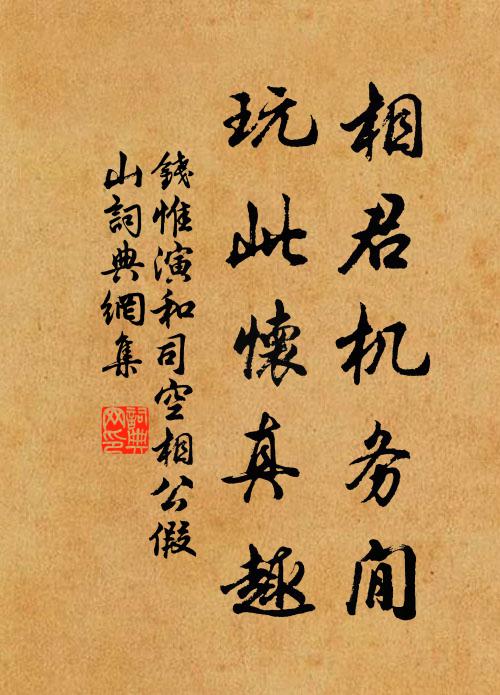 相君机务闲
玩此懷真趣
錢惟演和司空相公假
山詞典網集
詞典
网印